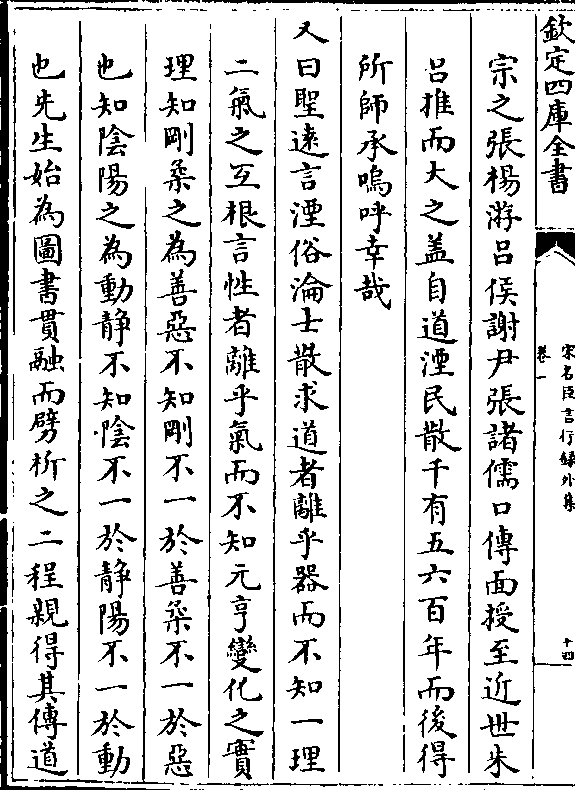 欽定四庫全書
宋名臣言行録外集
卷一
十四
宗之張楊游呂侯謝尹張諸儒口傳面授至近世朱
呂推而大之盖自道湮民散千有五六百年而後得
所師承嗚呼幸哉
又曰聖逺言湮俗淪士散求道者離乎器而不知一理
二氣之互根言性者離乎氣而不知元亨變化之實
理知剛柔之為善惡不知剛不一於善柔不一於惡
也知陰陽之為動静不知陰不一於静陽不一於動
也先生始為圖書貫融而劈析之二程親得其傳道